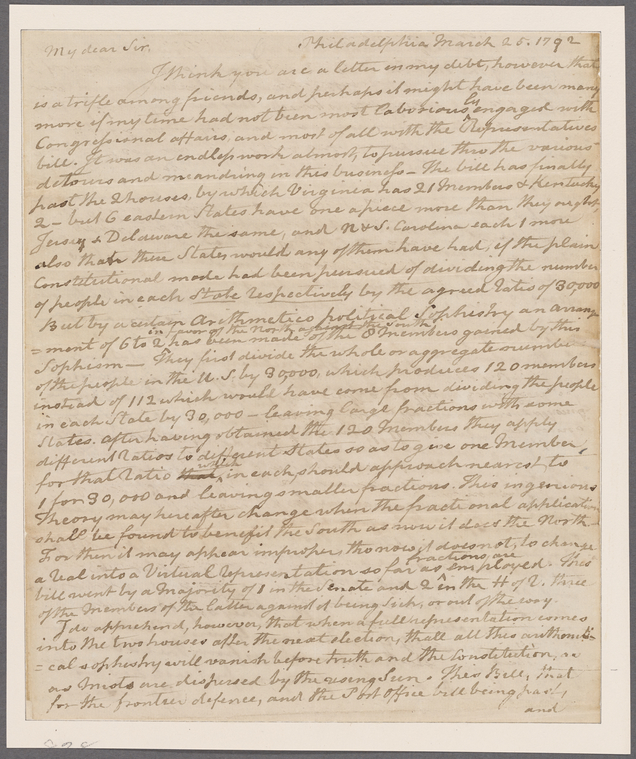 My dear Sir, Philadelphia March 25. 1792
I think you are a letter in my debt, however that
is a trifle among friends, and perhaps it might have been many
more if my time had not been most laboriously engaged with
Congressional affairs, and most of all with the Representatives
bill. It was an endless work almost, to pursue thro the various
detours and meandring in this business - The bill has finally
past the 2 houses, by which Virginia has 21 Members & Kentucky
2 - but 6 eastern States have one apiece more than they ought,
Jersey & Delaware the same, and N & S. Carolina each 1 more
also than these States would any of them have had, if the plain
Constitutional mode had been pursued of dividing the number
of people in each State respectively by the agreed ratio of 30,000
But by a certain Arithmetico political Sophistry an arrange
in favor of the North against the South
=ment of 6 to 2 has been made of the 8 members gained by this
Sophism - They first divide the whole or aggregate number
of the people in the U.S. by 30,000, which produces 120 members
instead of 112 which would have come from dividing the people
in each State by 30,000 - leaving large fractions with some
States. after having obtained the 120 Members they apply
different ratios to different States so as to give one Member,
for that ratio which in each should approach nearest to
1 for 30,000 and leaving smaller fractions. This ingenious
Theory may hereafter change when the fractional application
shall be found to benefit the South as now it does the North.
For then it may appear improper, tho now it does not, to change
fractions are
a real into a Virtual representation so far as employed. This
bill went by a Majority of 1 in the Senate and 2 in the H of R. three
of the Members of the latter against it being sick, or out of the way.
I do apprehend, however, that when a full representation comes
into the two houses after the next election, that all this arithmeti=
=cal sophistry will vanish before truth and the Constitution,
as Mists are dispersed by the rising Sun. This Bill, that
for the frontier defence, and the Post Office bill being past,
and